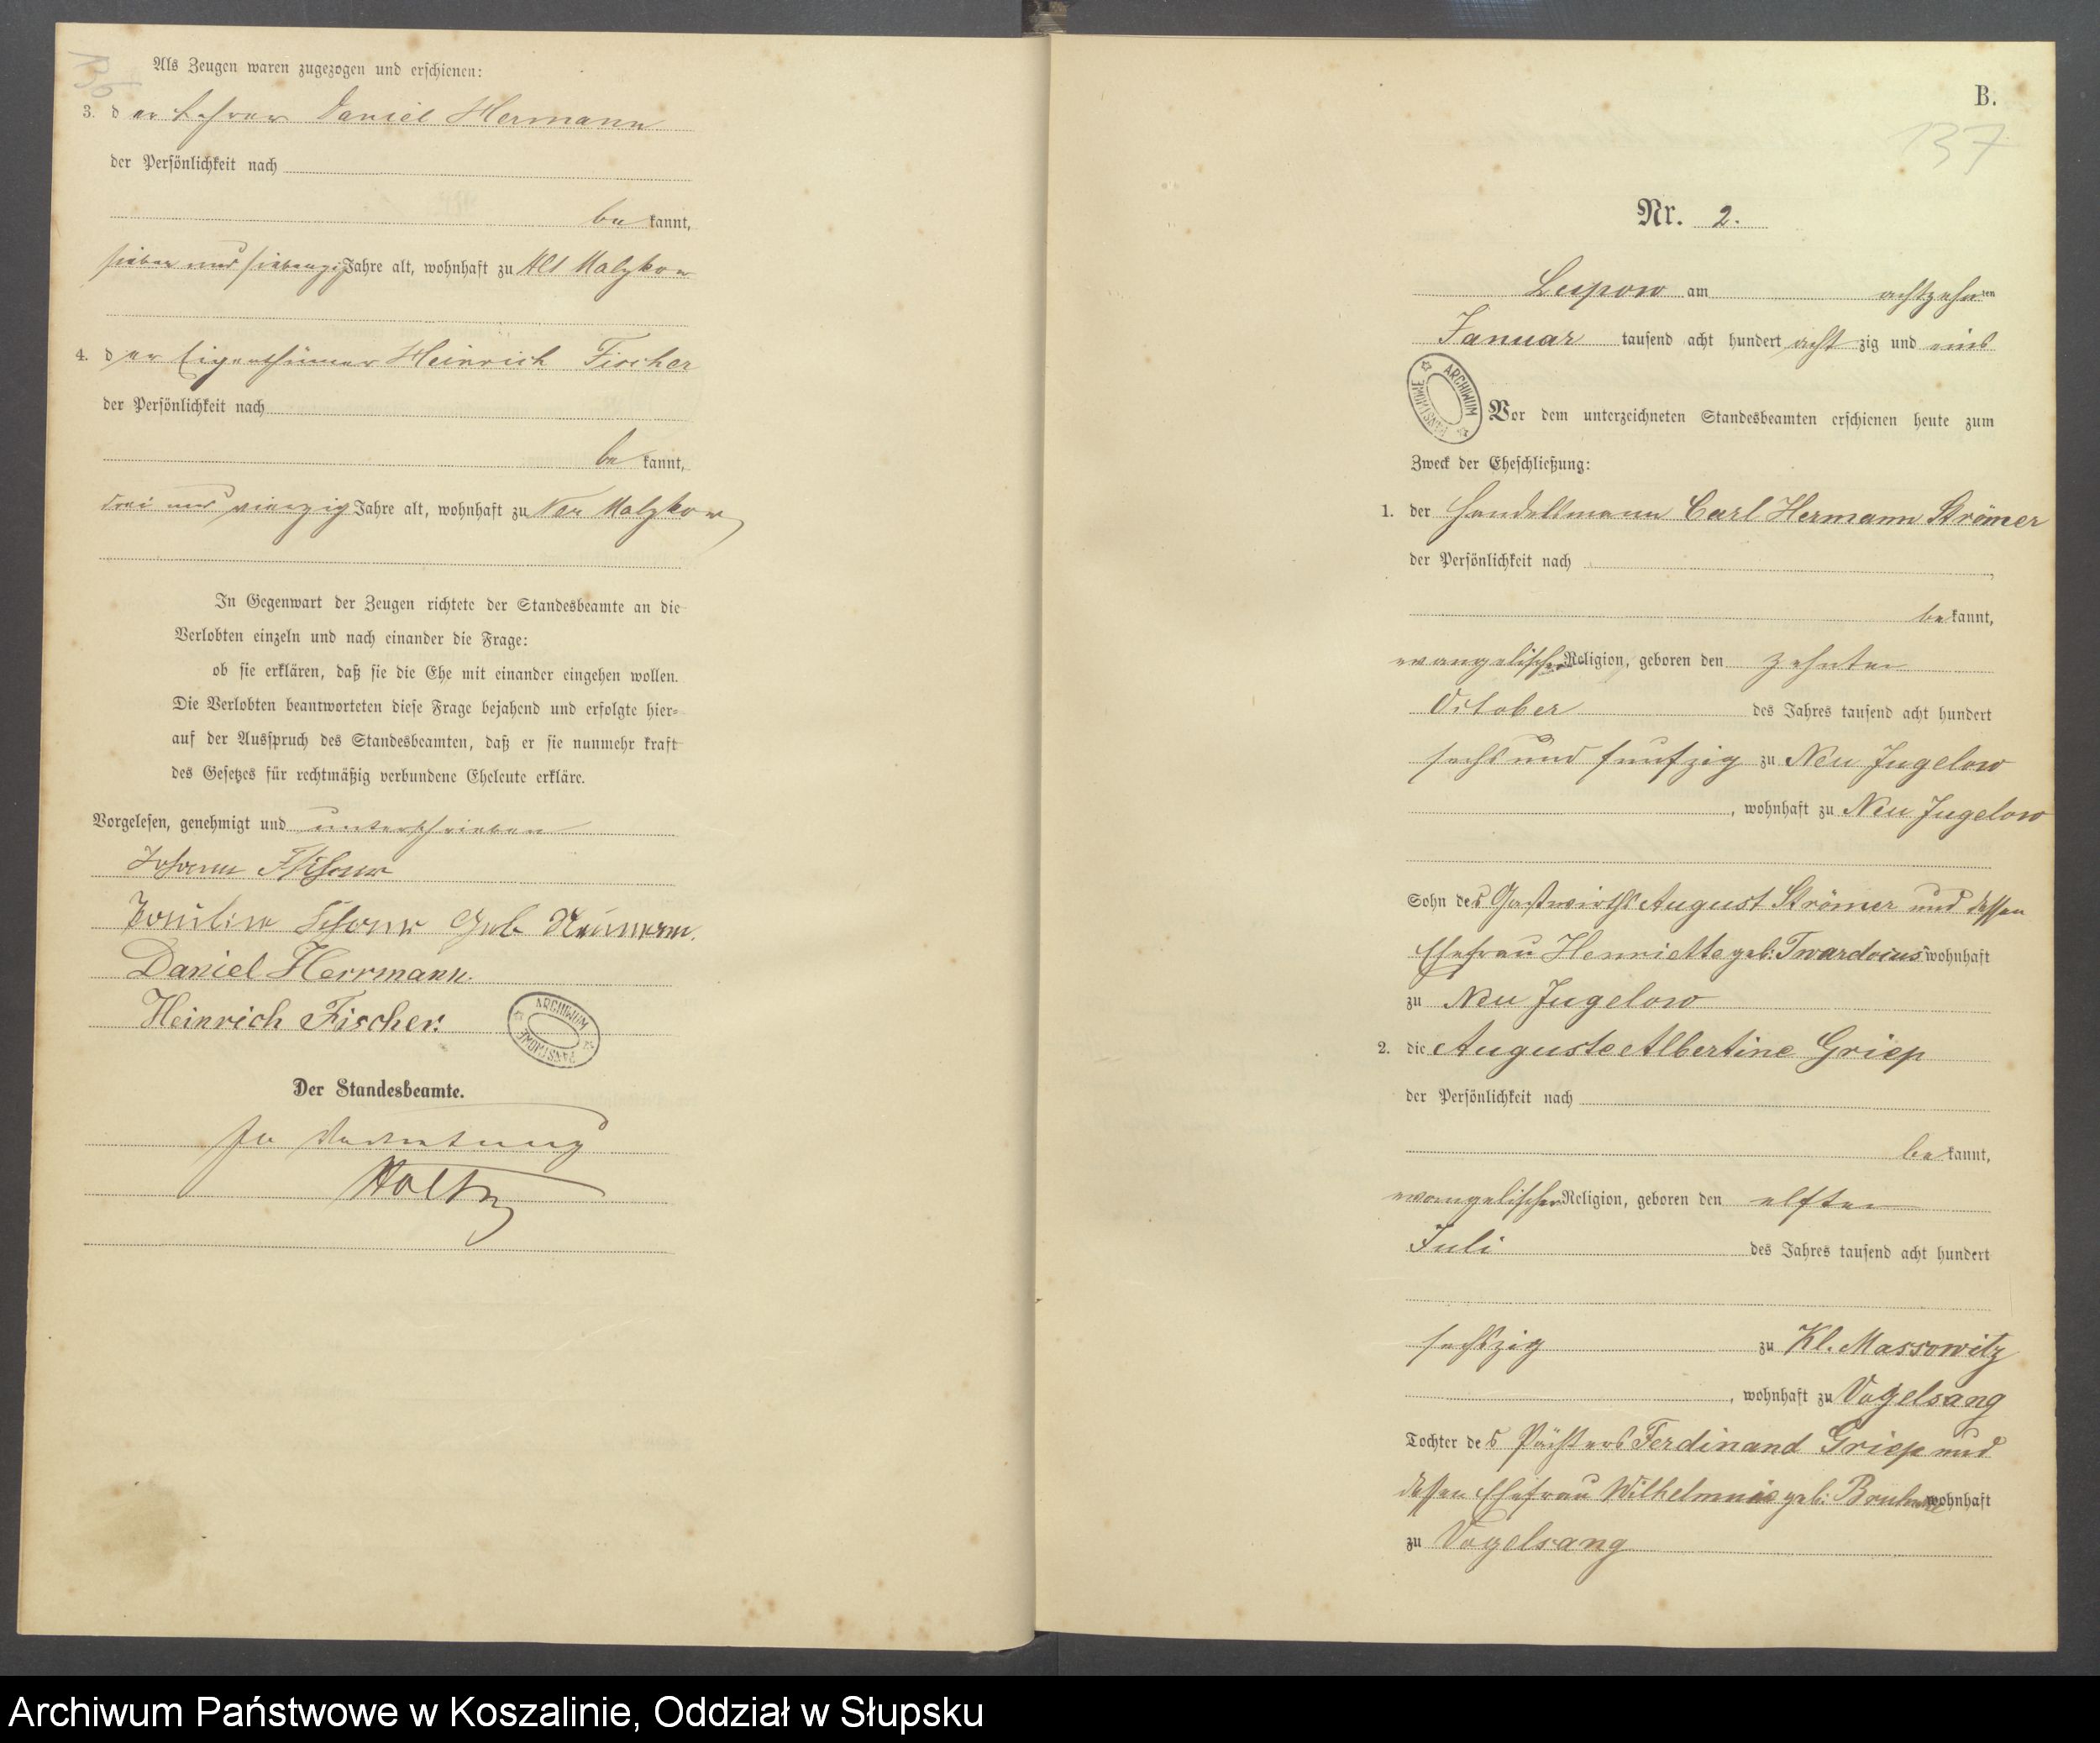 136
Als Zeugen waren zugezogen und erschienen:
3. der Lehrer Daniel Hermann
der Persönlichkeit nach
bekannt,
sieben und siebenzig Jahre alt, wohnhaft zu Alt Malzkow
4. der Eigenthümer Heinrich Fischer
der Persönlichkeit nach
bekannt,
drei und vierzig Jahre alt, wohnhaft zu Neu Malzkow
In Gegenwart der Zeugen richtete der Standesbeamte an die
Verlobten einzeln und nach einander die Frage:
ob sie erklären, daß sie die Ehe mit einander eingehen wollen.
Die Verlobten beantworteten diese Frage bejahend und erfolgte hier-
auf der Ausspruch des Standesbeamten, daß er sie nunmehr kraft
des Gesetzes für rechtmäßig verbundene Eheleute erkläre.
Vorgelesen, genehmigt und unterschrieben
Johann
Geb
Daniel Herrmann.
Heinrich Fischer.
ARCHIWUM PAŃSTWOWE
Der Standesbeamte.
In Vertretung
Holtz
B.
137
Nr. 2.
Lupow am achtzehnten
Januar tausend acht hundert achtzig und eins
ARCHIWUM PAŃSTWOWE
Vor dem unterzeichneten Standesbeamten erschienen heute zum
Zweck der Eheschließung:
1. der Handelsmann Carl Hermann Strömer
der Persönlichkeit nach
bekannt,
evangelischer Religion, geboren den zehnten
October des Jahres tausend acht hundert
sechs und funfzig zu Neu Jugelow
, wohnhaft zu Neu Jugelow
Sohn des Gastwirths August Strömer und dessen
Ehefrau Henriette geb: Twardocus wohnhaft
zu Neu Jugelow
2. die Auguste Albertine Griep
der Persönlichkeit nach
bekannt,
evangelischer Religion, geboren den elften
Juli des Jahres tausend acht hundert
sechszig zu Kl. Massowitz
, wohnhaft zu Vogelsang
Tochter des Pächters Ferdinand Griep und
dessen Ehefrau Wilhelmine geb: wohnhaft
zu Vogelsang
Archiwum Państwowe w Koszalinie, Oddział w Słupsku